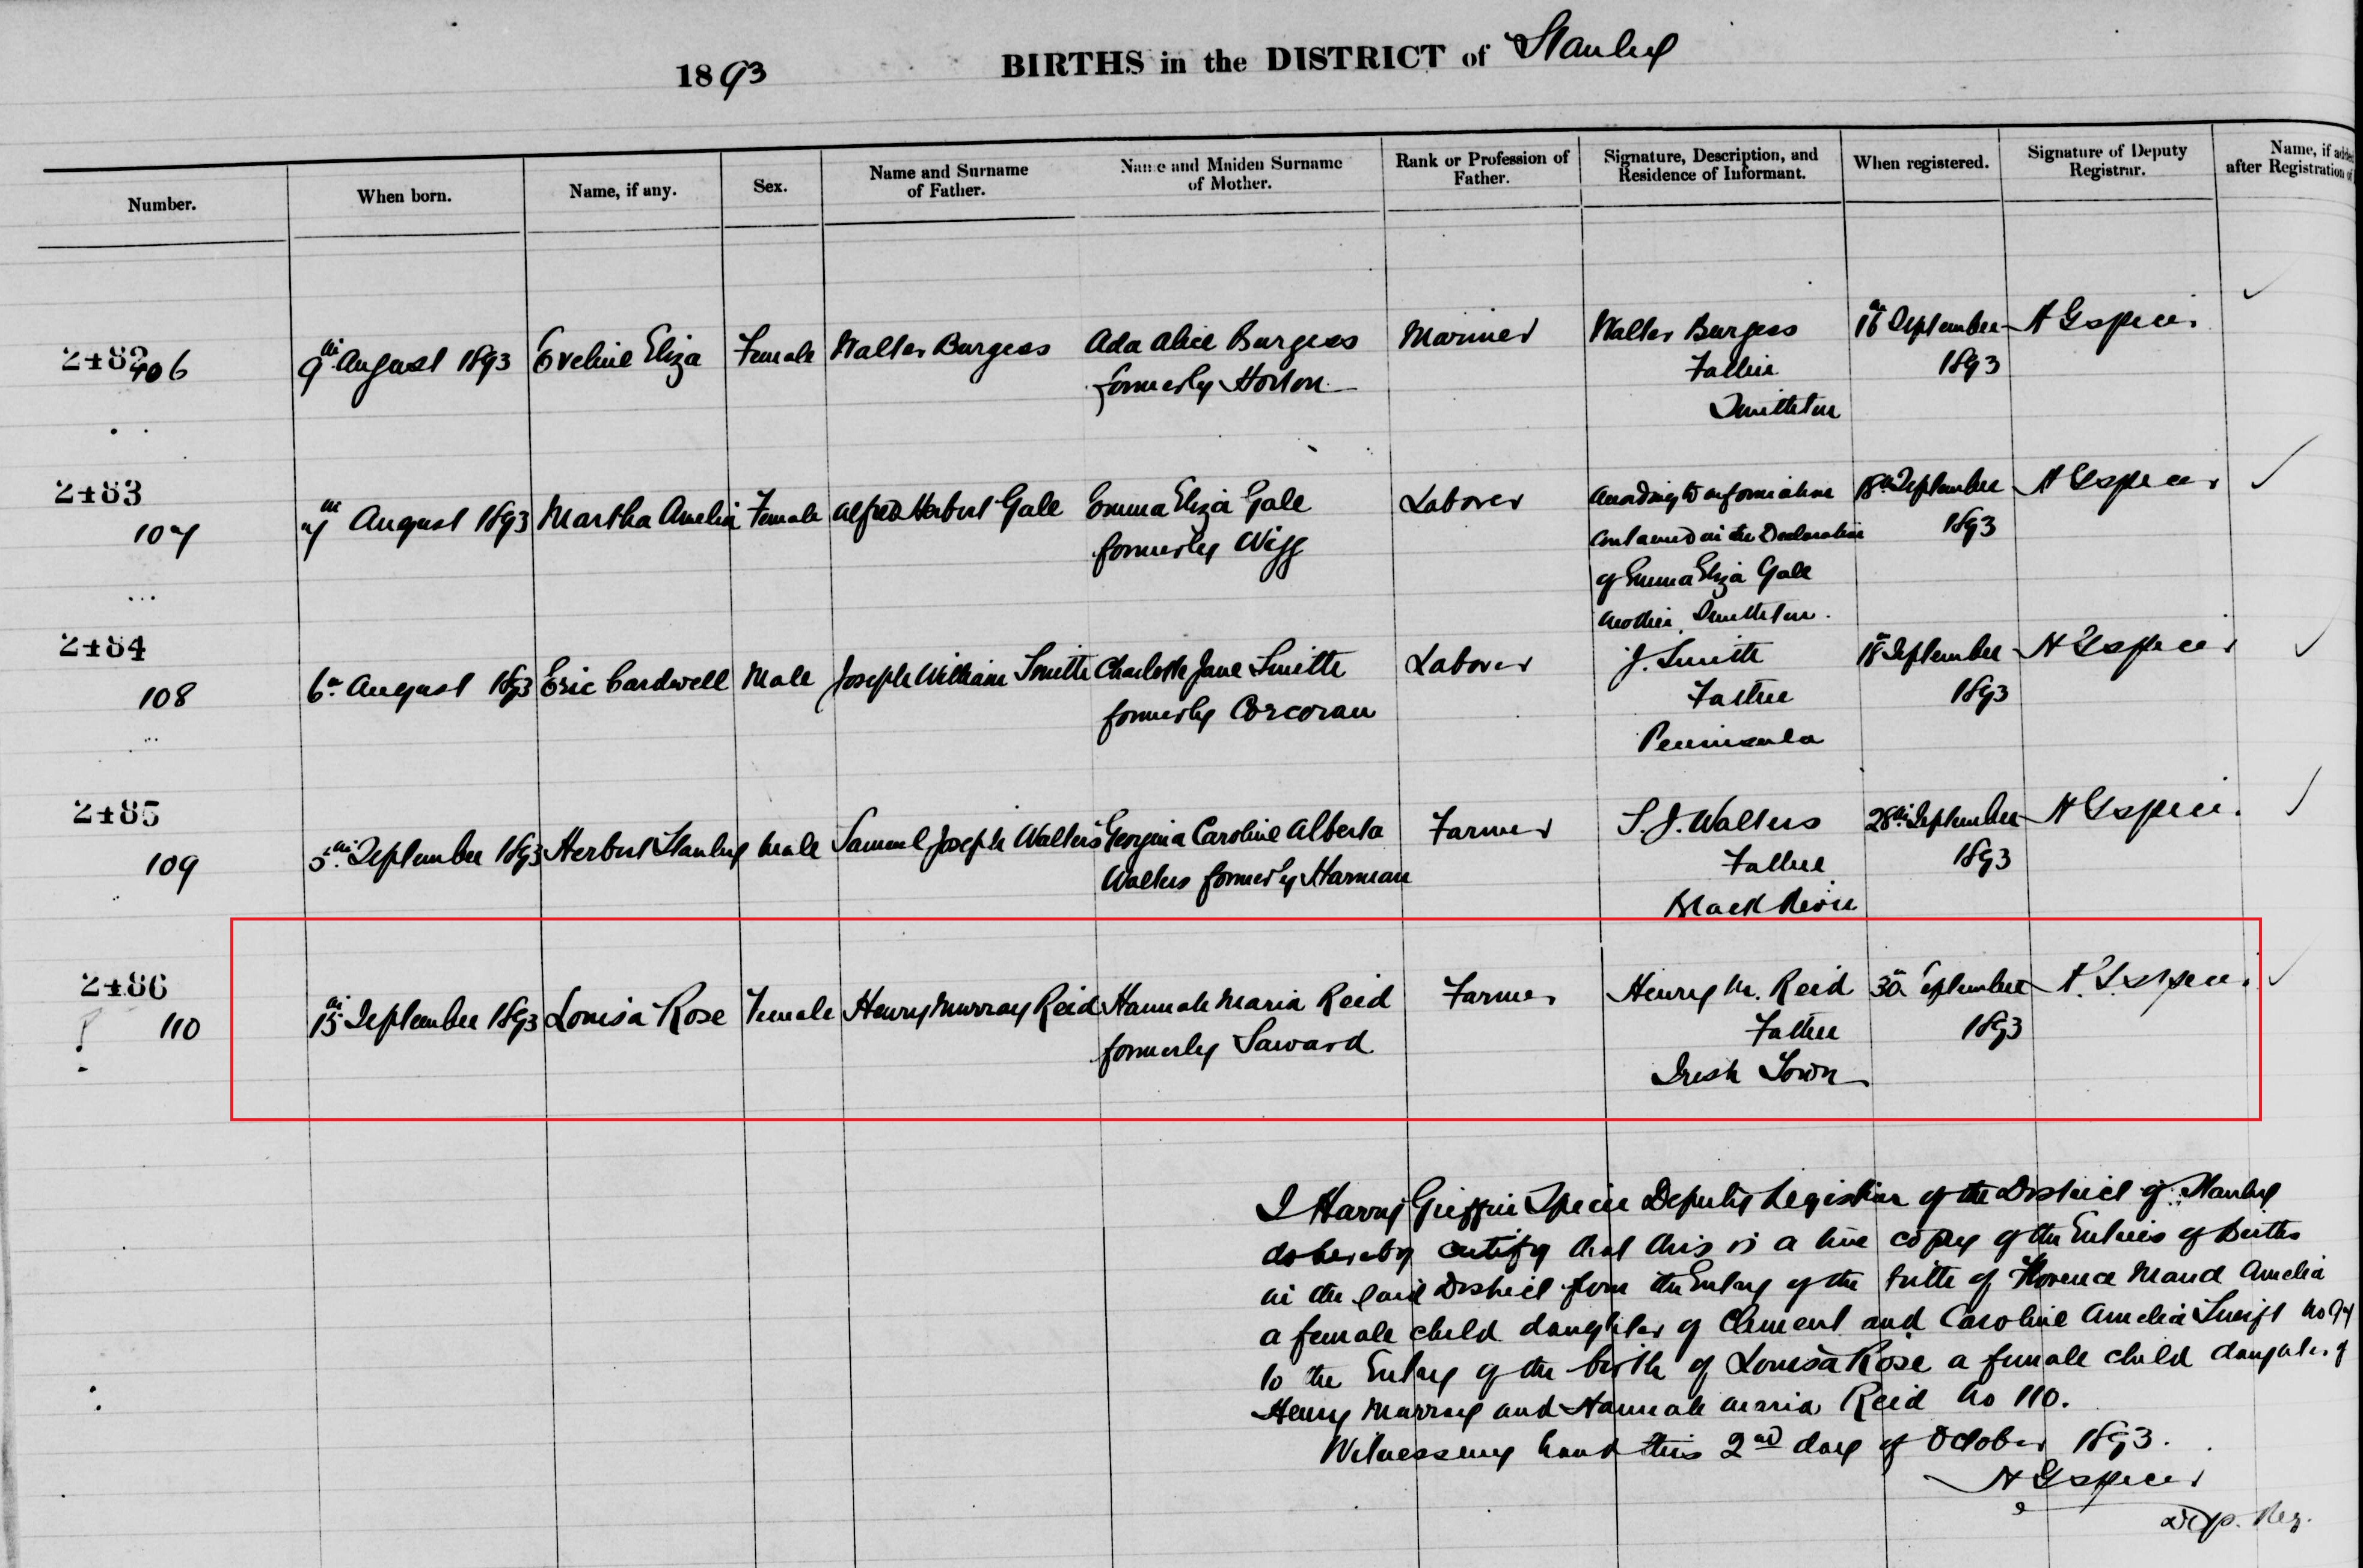 1893 BIRTHS in the DISTRICT of Stanley
Number. When born. Name, if any. Sex. Name and Surname of Father. Name and Maiden Surname of Mother. Rank or Profession of Father. Signature, Description, and Residence of Informant. When registered. Signature of Deputy Registrar. Name, if added after Registration of
2482
106 9th August 1893 Eveline Eliza Female Walter Burgess Ada Alice Burgess Mariner Walter Burgess 16th September H G Spicer
formerly Horton Father 1893
Smithton
2483
107 7th August 1893 Martha Amelia Female Alfred Herbert Gale Emma Eliza Gale Laborer According to information 18th September H G Spicer
formerly Wigg contained in the Declaration 1893
of Emma Eliza Gale
Mother Smithton.
2484
108 6th August 1893 Eric Cardwell Male Joseph William Smith Charlotte Jane Smith Laborer J. Smith 18th September H G Spicer
formerly Corcoran Father 1893
Peninsula
2485
109 5th September 1893 Herbert Stanley Male Samuel Joseph Walters Georgina Caroline Alberta Farmer S. J. Walters 28th September H G Spicer
Walters formerly Harman Father 1893
Black River
2486
110 15th September 1893 Louisa Rose Female Henry Murray Reid Hannah Maria Reid Farmer Henry M. Reid 30th September H. G. Spicer
formerly Saward Father 1893
Irish Town
I Harry Griffin Spicer Deputy Registrar of the District of Stanley
do hereby certify that this is a true copy of the Entries of Births
in the said District from the Entry of the birth of Florence Maud Amelia
a female child daughter of Clement and Caroline Amelia Swift No
to the Entry of the birth of Louisa Rose a female child daughter of
Henry Murray and Hannah Maria Reid No 110.
Witness my hand this 2nd day of October 1893.
H G Spicer
Dep. Reg.